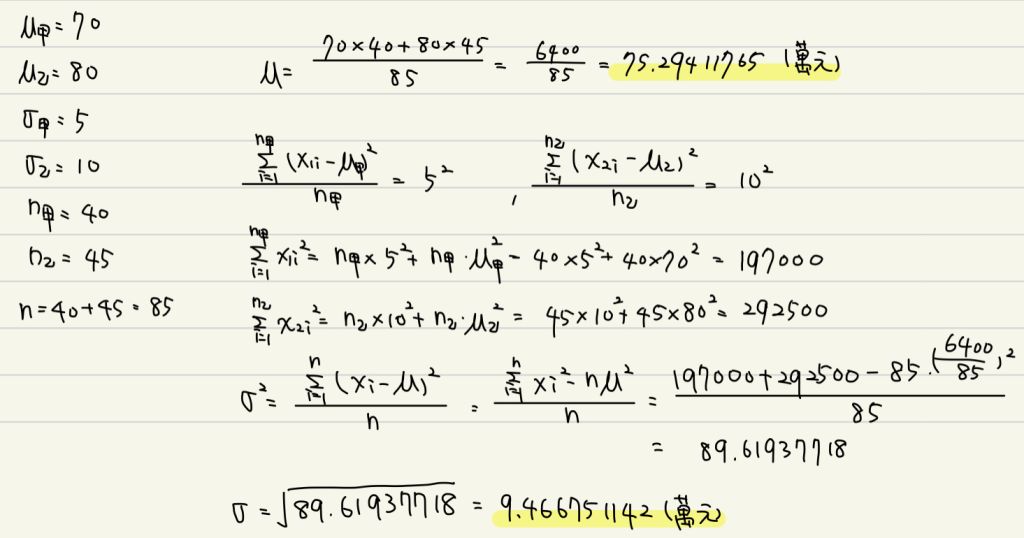 μ甲 = 70
μ乙 = 80
σ甲 = 5
σ乙 = 10
n甲 = 40
n乙 = 45
n = 40+45 = 85
μ = (70×40+80×45)/85 = 6400/85 = 75.29411765 (萬元)
Σ_{i=1}^{n甲} (x1i - μ甲)²/n甲 = 5² , Σ_{i=1}^{n乙} (x2i - μ乙)²/n乙 = 10²
Σ_{i=1}^{n甲} x1i² = n甲×5² + n甲·μ甲² - 40×5² + 40×70² = 197000
Σ_{i=1}^{n乙} x2i² = n乙×10² + n乙·μ乙² = 45×10² + 45×80² = 292500
σ² = Σ_{i=1}^{n} (xi - μ)²/n = (Σ_{i=1}^{n} xi² - nμ²)/n = (197000+292500-85·(6400/85)²)/85
= 89.61937718
σ = √89.61937718 = 9.466751142 (萬元)